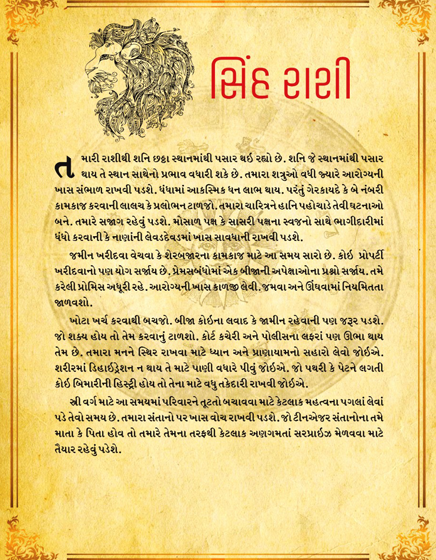 સિંહ રાશી
તમારી રાશીથી શનિ છઠ્ઠા સ્થાનમાંથી પસાર થઇ રહ્યો છે. શનિ જે સ્થાનમાંથી પસાર
થાય તે સ્થાન સાથેનો પ્રભાવ વધારી શકે છે. તમારા શત્રુઓ વધી જ્યારે આરોગ્યની
ખાસ સંભાળ રાખવી પડશે. ધંધામાં આકસ્મિક ધન લાભ થાય. પરંતું ગેરકાયદે કે બે નંબરી
કામકાજ કરવાની લાલચ કે પ્રલોભન ટાળજો. તમારો ચારિત્રને હાનિ પહોચાડે તેવી ઘટનાઓ
બને. તમારે સજાગ રહેવું પડશે. મોસાળ પક્ષ કે સાસરી પક્ષના સ્વજનો સાથે ભાગીદારીમાં
ધંધો કરવાની કે નાણાંની લેવડદેવડમાં ખાસ સાવધાની રાખવી પડશે.
જમીન ખરીદવા વેચવા કે શેરબજારના કામકાજ માટે આ સમય સારો છે. કોઇ પ્રોપર્ટી
ખરીદવાનો પણ યોગ સર્જાય છે. પ્રેમસબંધોમાં એક બીજાની અપેક્ષાઓના પ્રશ્નો સર્જાય. તમે
કરેલી પ્રોમિસ અધૂરી રહે. આરોગ્યની ખાસ કાળજી લેવી. જમવા અને ઊંઘવામાં નિયમિતતા
જાળવશો.
ખોટા ખર્ચ કરવાથી બચજો. બીજા કોઇના લવાદ કે જામીન રહેવાની પણ જરૂર પડશે.
જો શક્ય હોય તો તેમ કરવાનું ટાળશો. કોર્ટ કચેરી અને પોલીસના લફરાં પણ ઊભા થાય
તેમ છે. તમારા મનને સ્થિર રાખવા માટે ધ્યાન અને પ્રાણાયામનો સહારો લેવો જોઇએ.
શરીરમાં ડિહાઈડ્રેશન ન થાય તે માટે પાણી વધારે પીવું જોઇએ. જો પથરી કે પેટને લગતી
કોઇ બિમારીની હિસ્ટ્રી હોય તો તેના માટે વધુ તકેદારી રાખવી જોઇએ.
સ્ત્રી વર્ગ માટે આ સમયમાં પરિવારને તૂટતો બચાવવા માટે કેટલાક મહત્વના પગલાં લેવાં
પડે તેવો સમય છે. તમારા સંતાનો પર ખાસ વોચ રાખવી પડશે. જો ટીનએજર સંતાનોના તમે
માતા કે પિતા હોવ તો તમારે તેમના તરફથી કેટલાક અણગમતાં સરપ્રાઇઝ મેળવવા માટે
તૈયાર રહેવું પડેશે.